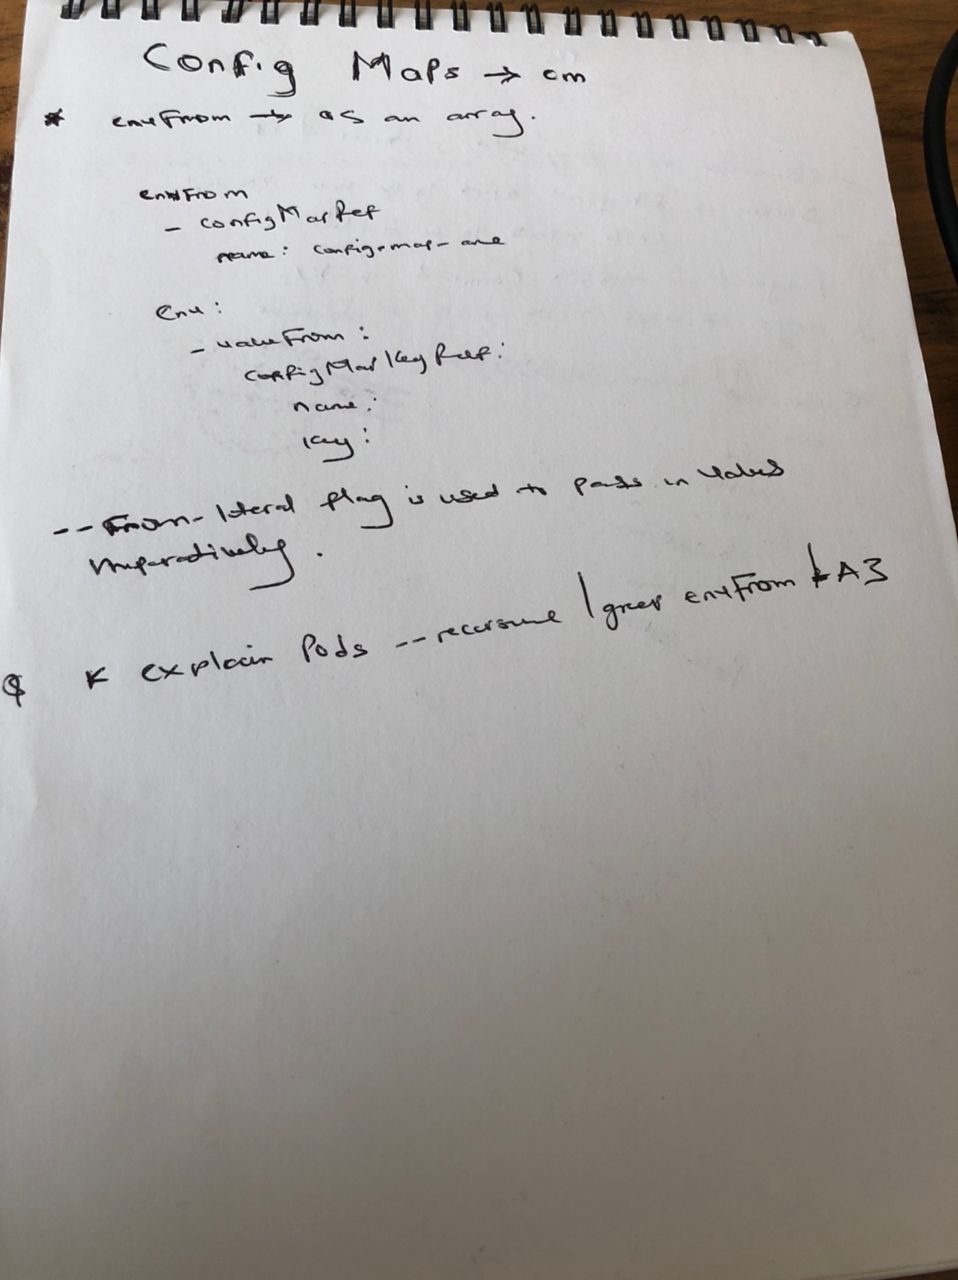 Config Maps → cm
* envFrom → as an array.
envFrom
- configMapRef
name: config-map-one
Env:
- valueFrom:
configMapKeyRef:
name:
key:
--from-literal flag is used to pass in values
imperatively.
k explain pods --recursive | grep envFrom -A3